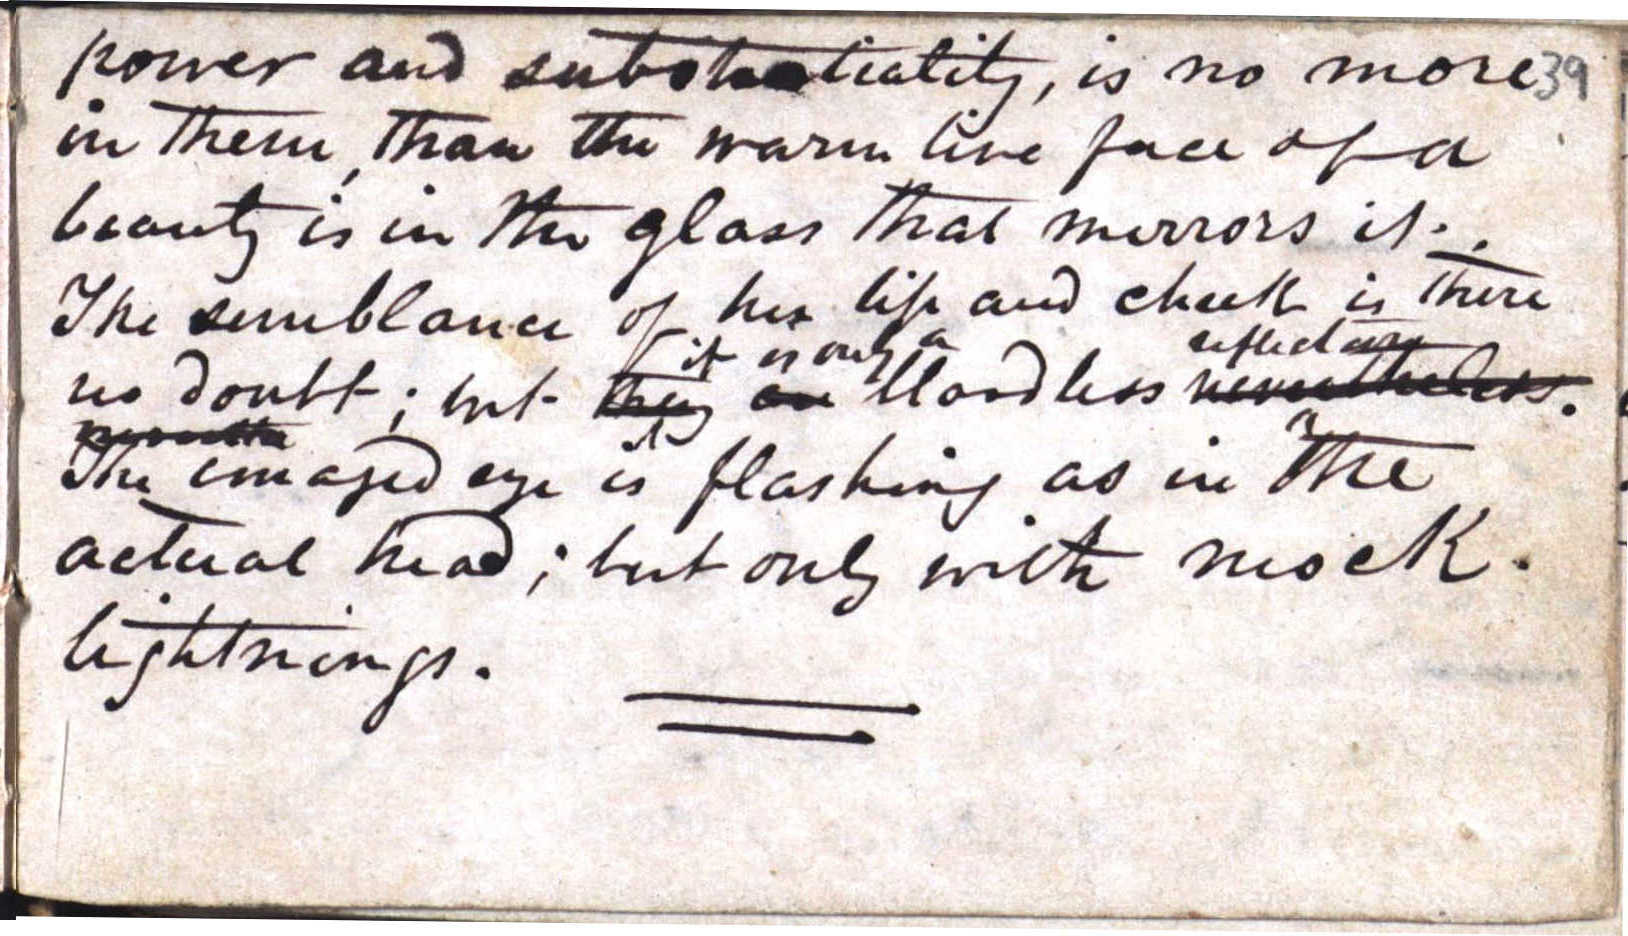 power and substantiality, is no more 39
in them, than the warm live face of a
beauty is in the glass that mirrors it.
The semblance of her lip and cheek is there
it is only a reflection
no doubt; but they are bloodless nevertheless.
The imaged eye is flashing as in the
actual head; but only with mock-
lightnings.